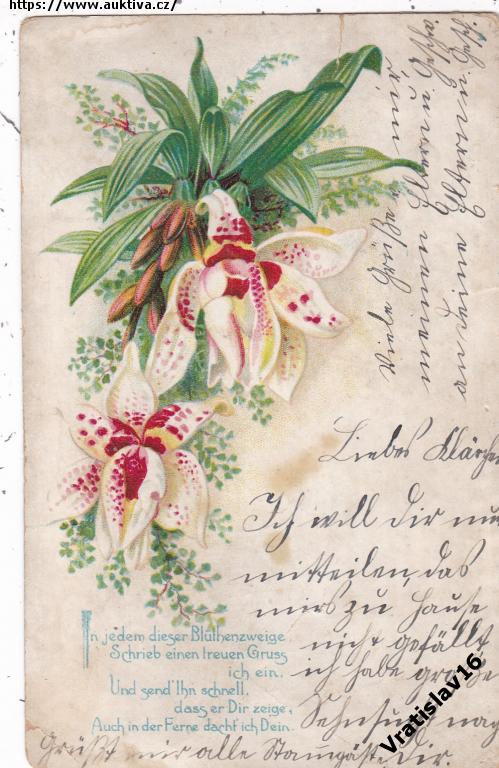 https://www.auktiva.cz/
Liebes Klärchen
Ich will dir nun
mitteilen, das
mirs zu Hause
nicht gefällt
ich habe große
Sehnsucht nach
dir.
Grüßt mir alle Stamgäste
Viele Grüße von
meinen Eltern u
an deine Eltern u
In jedem dieser Blüthenzweige
Schrieb einen treuen Gruss
ich ein,
Und send' Ihn schnell,
dass er Dir zeige,
Auch in der Ferne dacht ich Dein.
Vratislav16